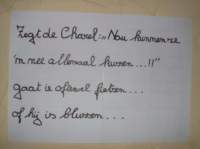 Zegt de Charel: „Nou kunnen ze
'm nee allemaal kussen...!!"
gaat ie ofwel fietsen...
of hij is blussen...